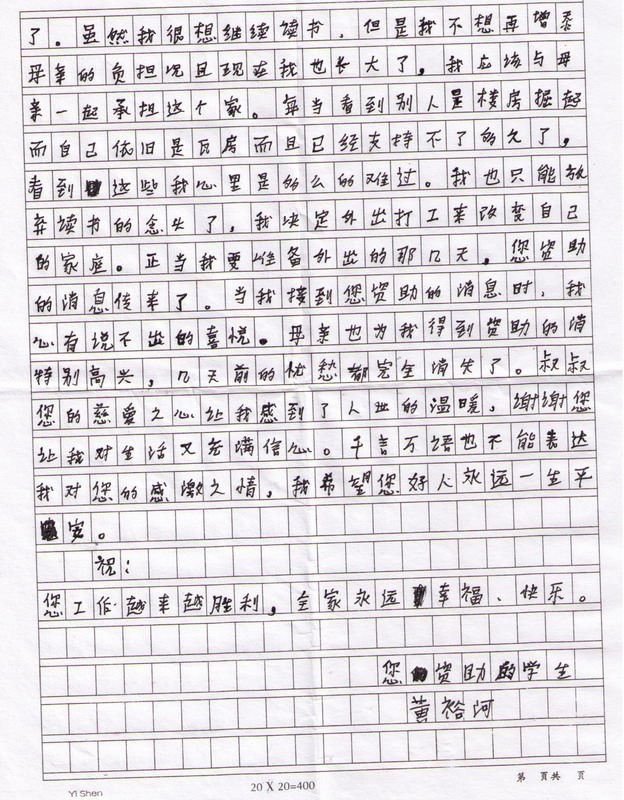 了。虽然我很想继续读书，但是我不想再增添
母亲的负担况且现在我也长大了，我应该与母
亲一起承担这个家。每当看到别人是楼房掘起
而自己依旧是瓦房而且已经支持不了的久了，
看到这些我心里是的么的难过。我也只能放
弃读书的念头了，我决定外出打工来改变自己
的家庭。正当我要准备外出的那几天，您资助
的消息传来了。当我接到您资助的消息时，我
心有说不出的喜悦。母亲也为我得到资助的消
特别高兴，几天前的忧愁都完全消失了。叔叔
您的慈爱之心让我感到了人世的温暖，谢谢您
让我对生活又充满信心。千言万语也不能表达
我对您的感激之情，我希望您好人永远一生平
安。
祝：
您工作越来越胜利，全家永远幸福、快乐。
您的资助的学生
黄裕河
第 页共 页
20 X 20=400
Yi Shen